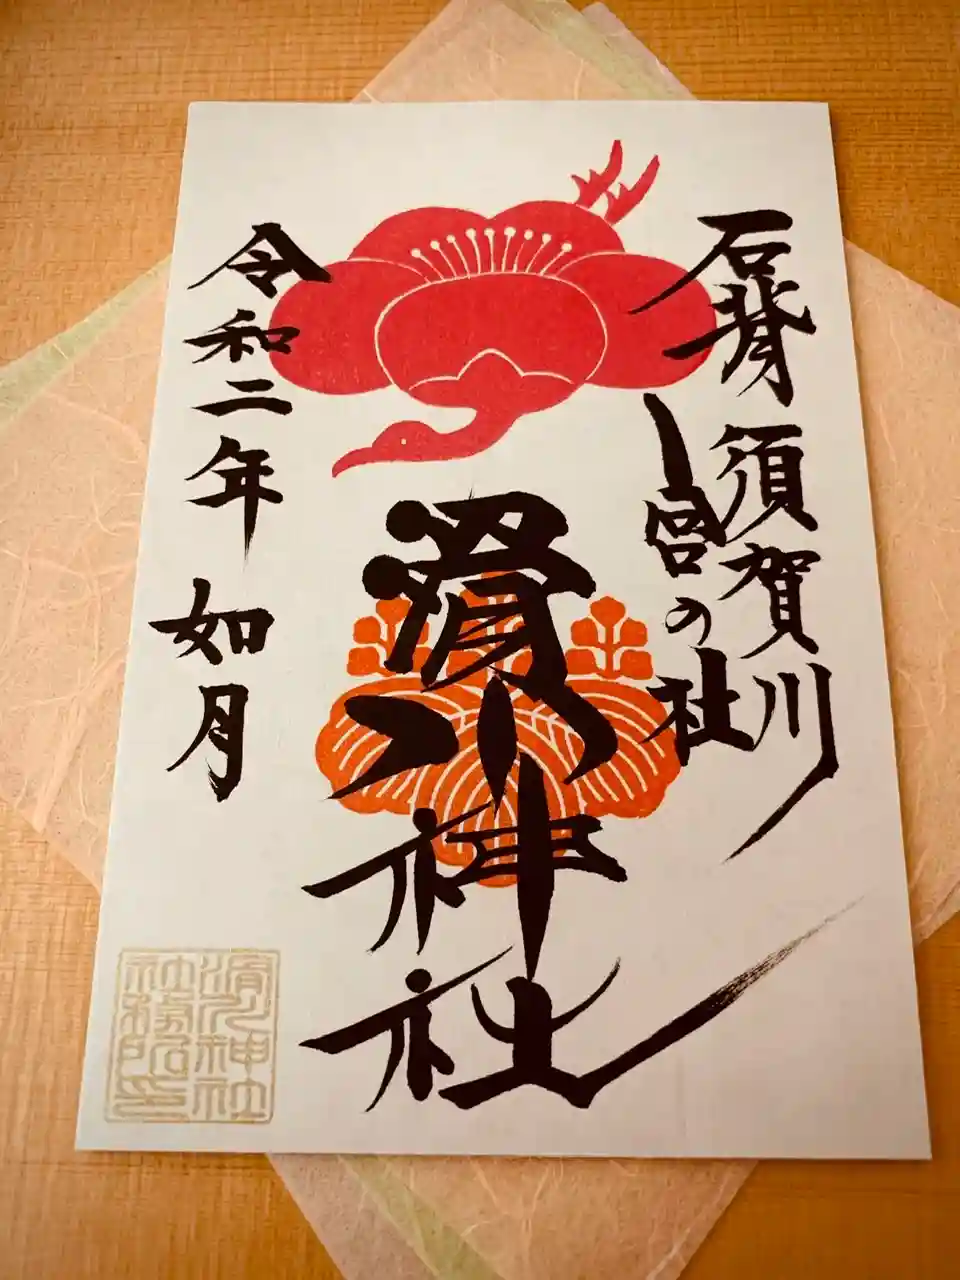 石背 須賀川
宮の社
滑川神社
令和二年 如月
滑川神社
社務所印